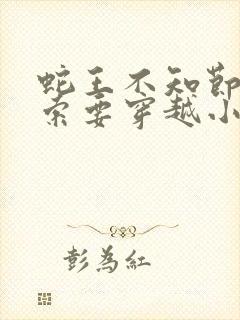 蛇王不知節
索要穿越小
彭為紅